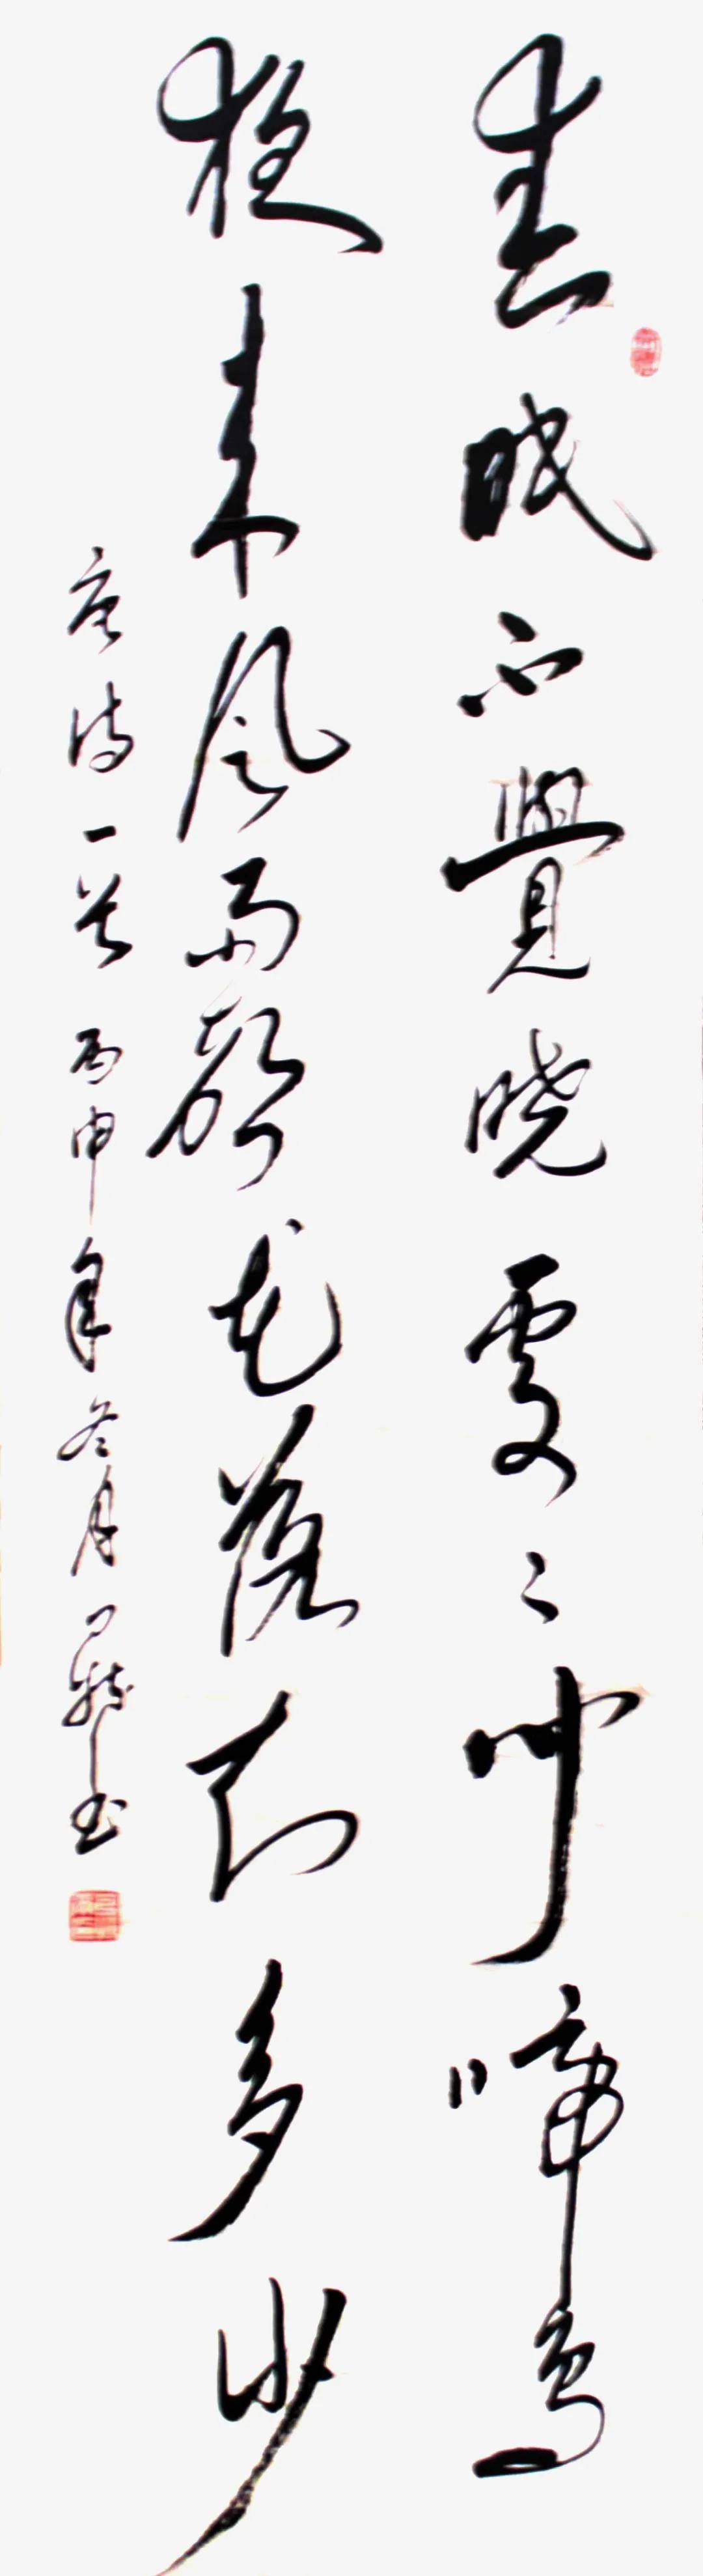 春眠不覺曉處々聞啼鳥
夜来風雨聲花落知多少
唐诗一首 丙申年冬月